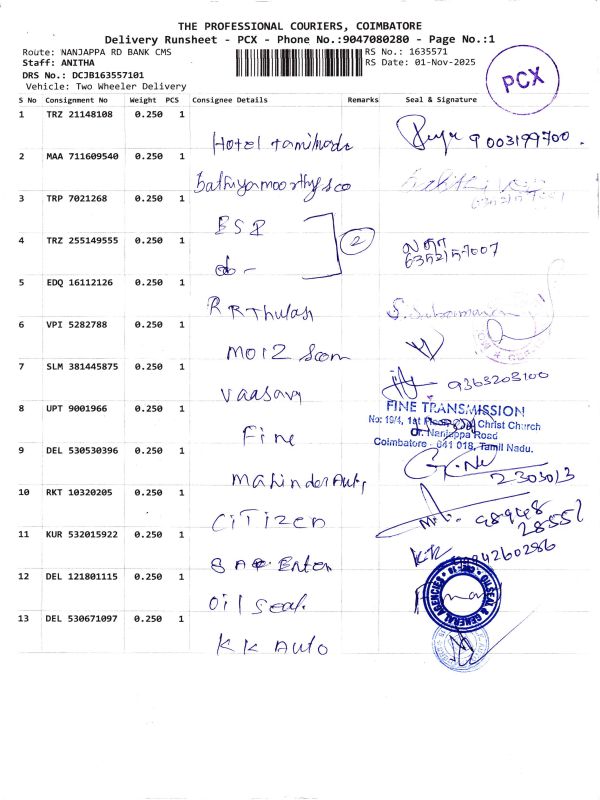 THE PROFESSIONAL COURIERS, COIMBATORE
Delivery Runsheet - PCX - Phone No.:9047080280 - Page No.:1
Route: NANJAPPA RD BANK CMS
RS No.: 1635571
Staff: ANITHA
RS Date: 01-Nov-2025
DRS No.: DCJB163557101
Vehicle: Two Wheeler Delivery
PCX
S No Consignment No Weight PCS Consignee Details Remarks Seal & Signature
1 TRZ 21148108 0.250 1
Hotel Tamilnadu 9003199700.
2 MAA 711609540 0.250 1
3 TRP 7021268 0.250 1
ESI
2
4 TRZ 255149555 0.250 1
6352157007
5 EDQ 16112126 0.250 1
RR Thulasi
6 VPI 5282788 0.250 1
7 SLM 381445875 0.250 1
Vaasavy
9363203100
8 UPT 9001966 0.250 1
Fine
FINE TRANSMISSION
No: 19/4, 1st Floor Christ Church
Dr. Nanjappa Road
Coimbatore - 641 018, Tamil Nadu.
9 DEL 530530396 0.250 1
Mahinder Auto
2303013
10 RKT 10320205 0.250 1
Citizen
98948
28551
11 KUR 532015922 0.250 1
Enter
KK 9842260286
12 DEL 121801115 0.250 1
Oil Seal
OILSEAL & GENERAL AGENCIES
13 DEL 530671097 0.250 1
KK Auto